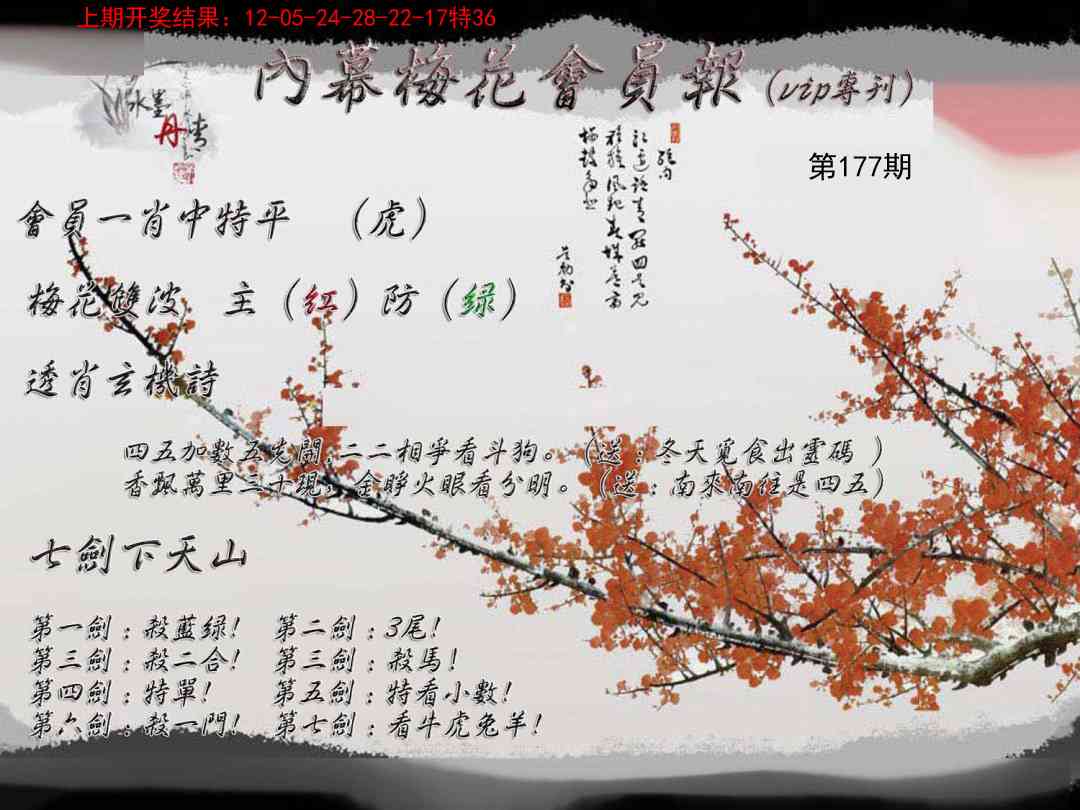 上期开奖结果：12-05-24-28-22-17特36
內幕梅花會員報（vip專刊）
水墨
丹青
第177期
會員一肖中特平　（虎）
梅花雙波　主（红）防（绿）
透肖玄機詩
四五加數五先開,二二相爭看斗狗。（送：冬天覓食出靈碼 ）
香飄萬里三十現，金睜火眼看分明。（送：南來南往是四五）
七劍下天山
第一劍：殺藍绿！　第二劍：3尾！
第三劍：殺二合！　第三劍：殺馬！
第四劍：特單！　第五劍：特看小數！
第六劍：殺一門！　第七劍：看牛虎兔羊！